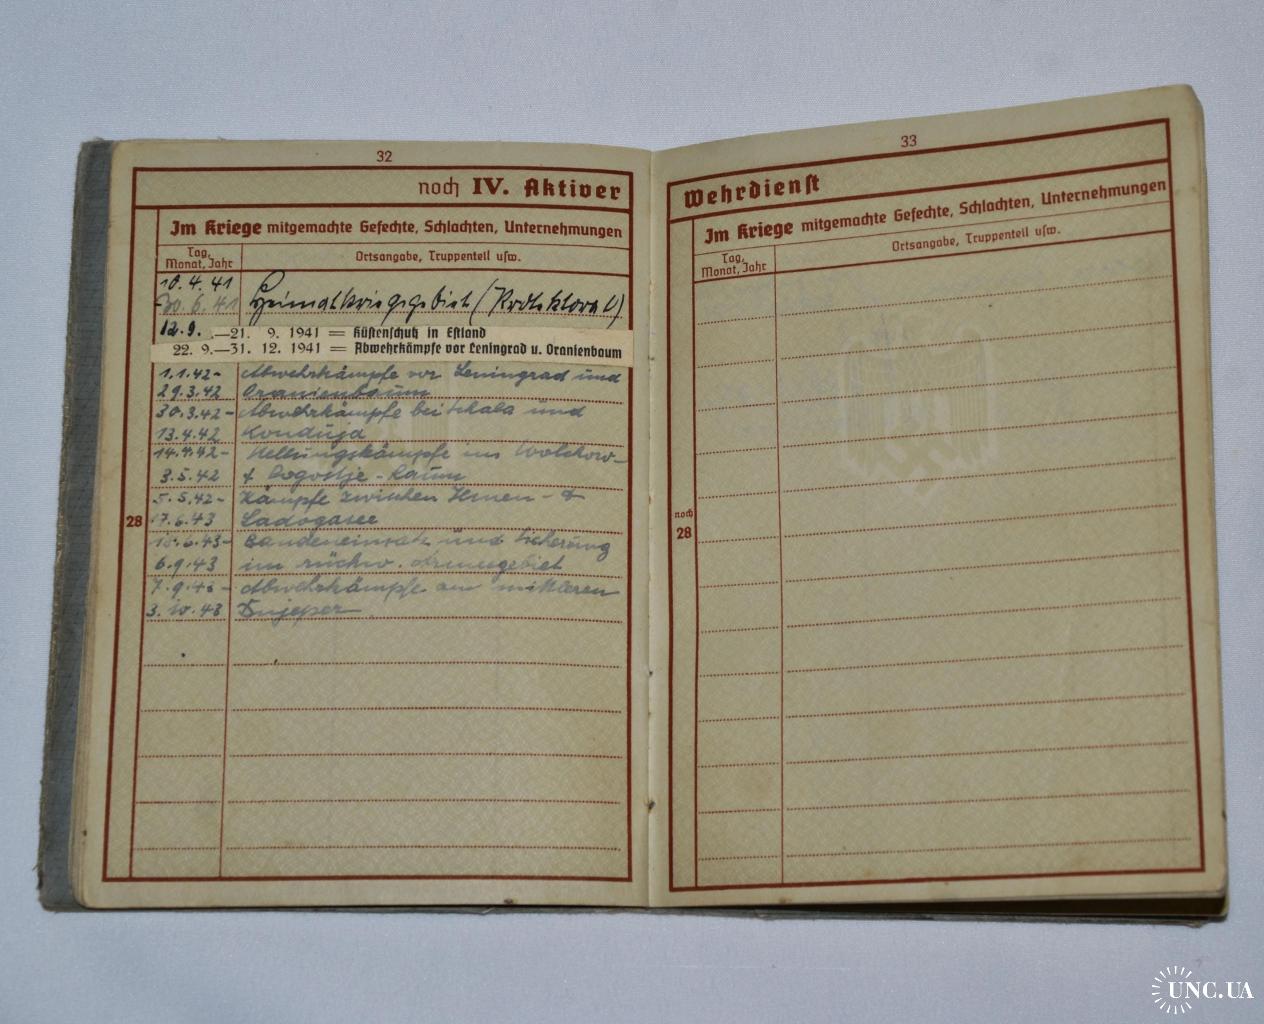 32
noch IV. Aktiver
Im Kriege mitgemachte Gefechte, Schlachten, Unternehmungen
Tag, Monat, Jahr
Ortsangabe, Truppenteil usw.
10.4.41
-30.6.41 Heimatkriegsgebiet (Protektorat)
12.9. .—21. 9. 1941 = Küstenschutz in Estland
22. 9.—31. 12. 1941 = Abwehrkämpfe vor Leningrad u. Oranienbaum
1.1.42- Abwehrkämpfe vor Leningrad und
29.3.42 Oranienbaum
30.3.42- Abwehrkämpfe bei und
13.4.42 Konduja
14.4.42- Stellungskämpfe im Wolchow-
3.5.42 + Pogostje-Raum
5.5.42- Kämpfe zwischen Ilmen- +
17.6.43 Ladogasee
18.6.43- Bandeneinsatz und Sicherung
6.9.43 im rückw. Armeegebiet
7.9.43- Abwehrkämpfe am mittleren
3.10.43 Dnjeper
28
33
Wehrdienst
Im Kriege mitgemachte Gefechte, Schlachten, Unternehmungen
Tag, Monat, Jahr
Ortsangabe, Truppenteil usw.
noch
28
UNC.UA